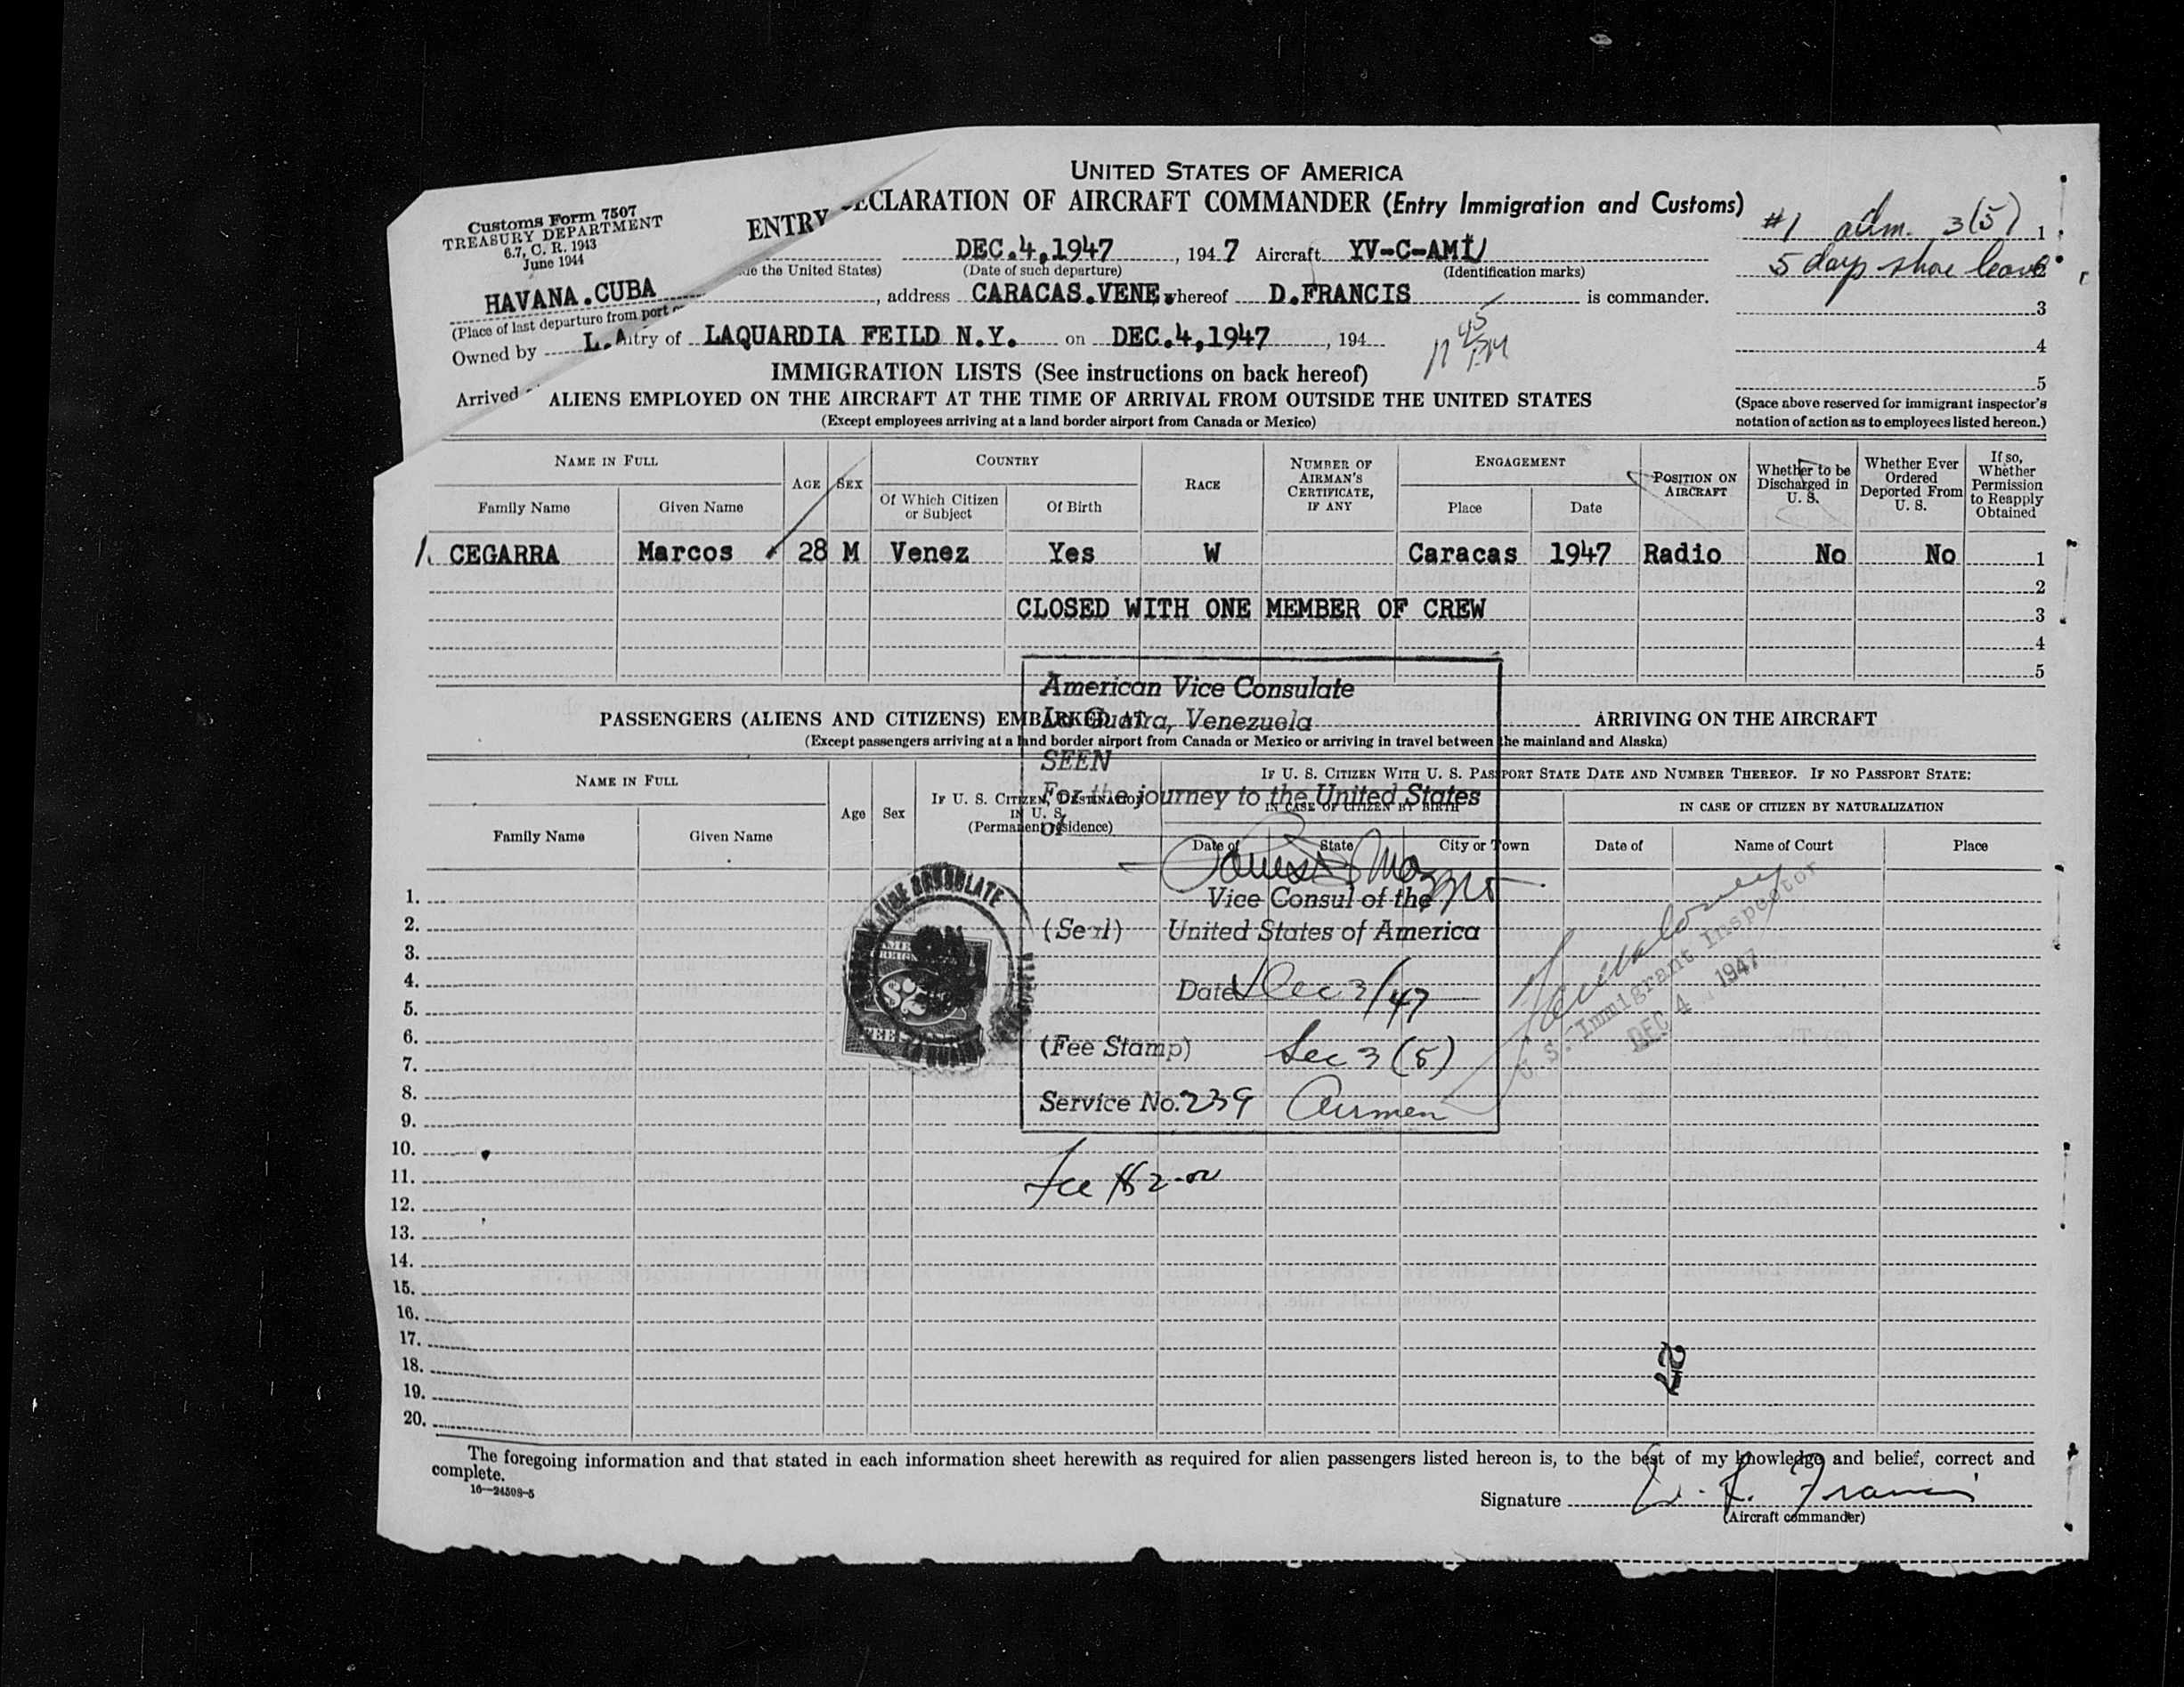 UNITED STATES OF AMERICA
Customs Form 7507
TREASURY DEPARTMENT
6.7, C. R. 1943
June 1944
ENTRY CLARATION OF AIRCRAFT COMMANDER (Entry Immigration and Customs)
#1 adm. 3(5) 1
HAVANA.CUBA DEC.4,1947, 1947 Aircraft YV-C-AMI
5 days shore leave
(Place of last departure from port the United States) (Date of such departure) (Identification marks)
Owned by L.A , address CARACAS.VENE whereof D.FRANCIS is commander.
3
Arrived try of LAQUARDIA FEILD N.Y. on DEC.4,1947, 194
11 45 PM
4
IMMIGRATION LISTS (See instructions on back hereof)
5
ALIENS EMPLOYED ON THE AIRCRAFT AT THE TIME OF ARRIVAL FROM OUTSIDE THE UNITED STATES
(Except employees arriving at a land border airport from Canada or Mexico)
(Space above reserved for immigrant inspector's
notation of action as to employees listed hereon.)
NAME IN FULL AGE SEX COUNTRY RACE NUMBER OF AIRMAN'S CERTIFICATE, IF ANY ENGAGEMENT POSITION ON AIRCRAFT Whether to be Discharged in U. S. Whether Ever Ordered Deported From U. S. If so, Whether Permission to Reapply Obtained
Family Name Given Name Of Which Citizen or Subject Of Birth Place Date
1. CEGARRA Marcos 28 M Venez Yes W Caracas 1947 Radio No No 1
2
CLOSED WITH ONE MEMBER OF CREW 3
4
5
PASSENGERS (ALIENS AND CITIZENS) EMBARKED AT ARRIVING ON THE AIRCRAFT
(Except passengers arriving at a land border airport from Canada or Mexico or arriving in travel between the mainland and Alaska)
NAME IN FULL Age Sex IF U. S. CITIZEN, DESTINATION IN U. S. (Permanent residence) IF U. S. CITIZEN WITH U. S. PASSPORT STATE DATE AND NUMBER THEREOF. IF NO PASSPORT STATE:
IN CASE OF CITIZEN BY BIRTH IN CASE OF CITIZEN BY NATURALIZATION
Family Name Given Name Date of State City or Town Date of Name of Court Place
American Vice Consulate
La Guaira, Venezuela
SEEN
For the journey to the United States
of
Vice Consul of the
(Seal) United States of America
Date Dec 3/47
(Fee Stamp) Sec 3 (5)
Service No. 239 Airmen
Fee $2.00
CONSULATE
LA GUAIRA
$2
FEE
U. S. Immigrant Inspector
DEC 4 1947
1.
2.
3.
4.
5.
6.
7.
8.
9.
10.
11.
12.
13.
14.
15.
16.
17.
18.
19.
20.
27
The foregoing information and that stated in each information sheet herewith as required for alien passengers listed hereon is, to the best of my knowledge and belief, correct and
complete.
16—24508-5
Signature D. K. Francis
(Aircraft commander)